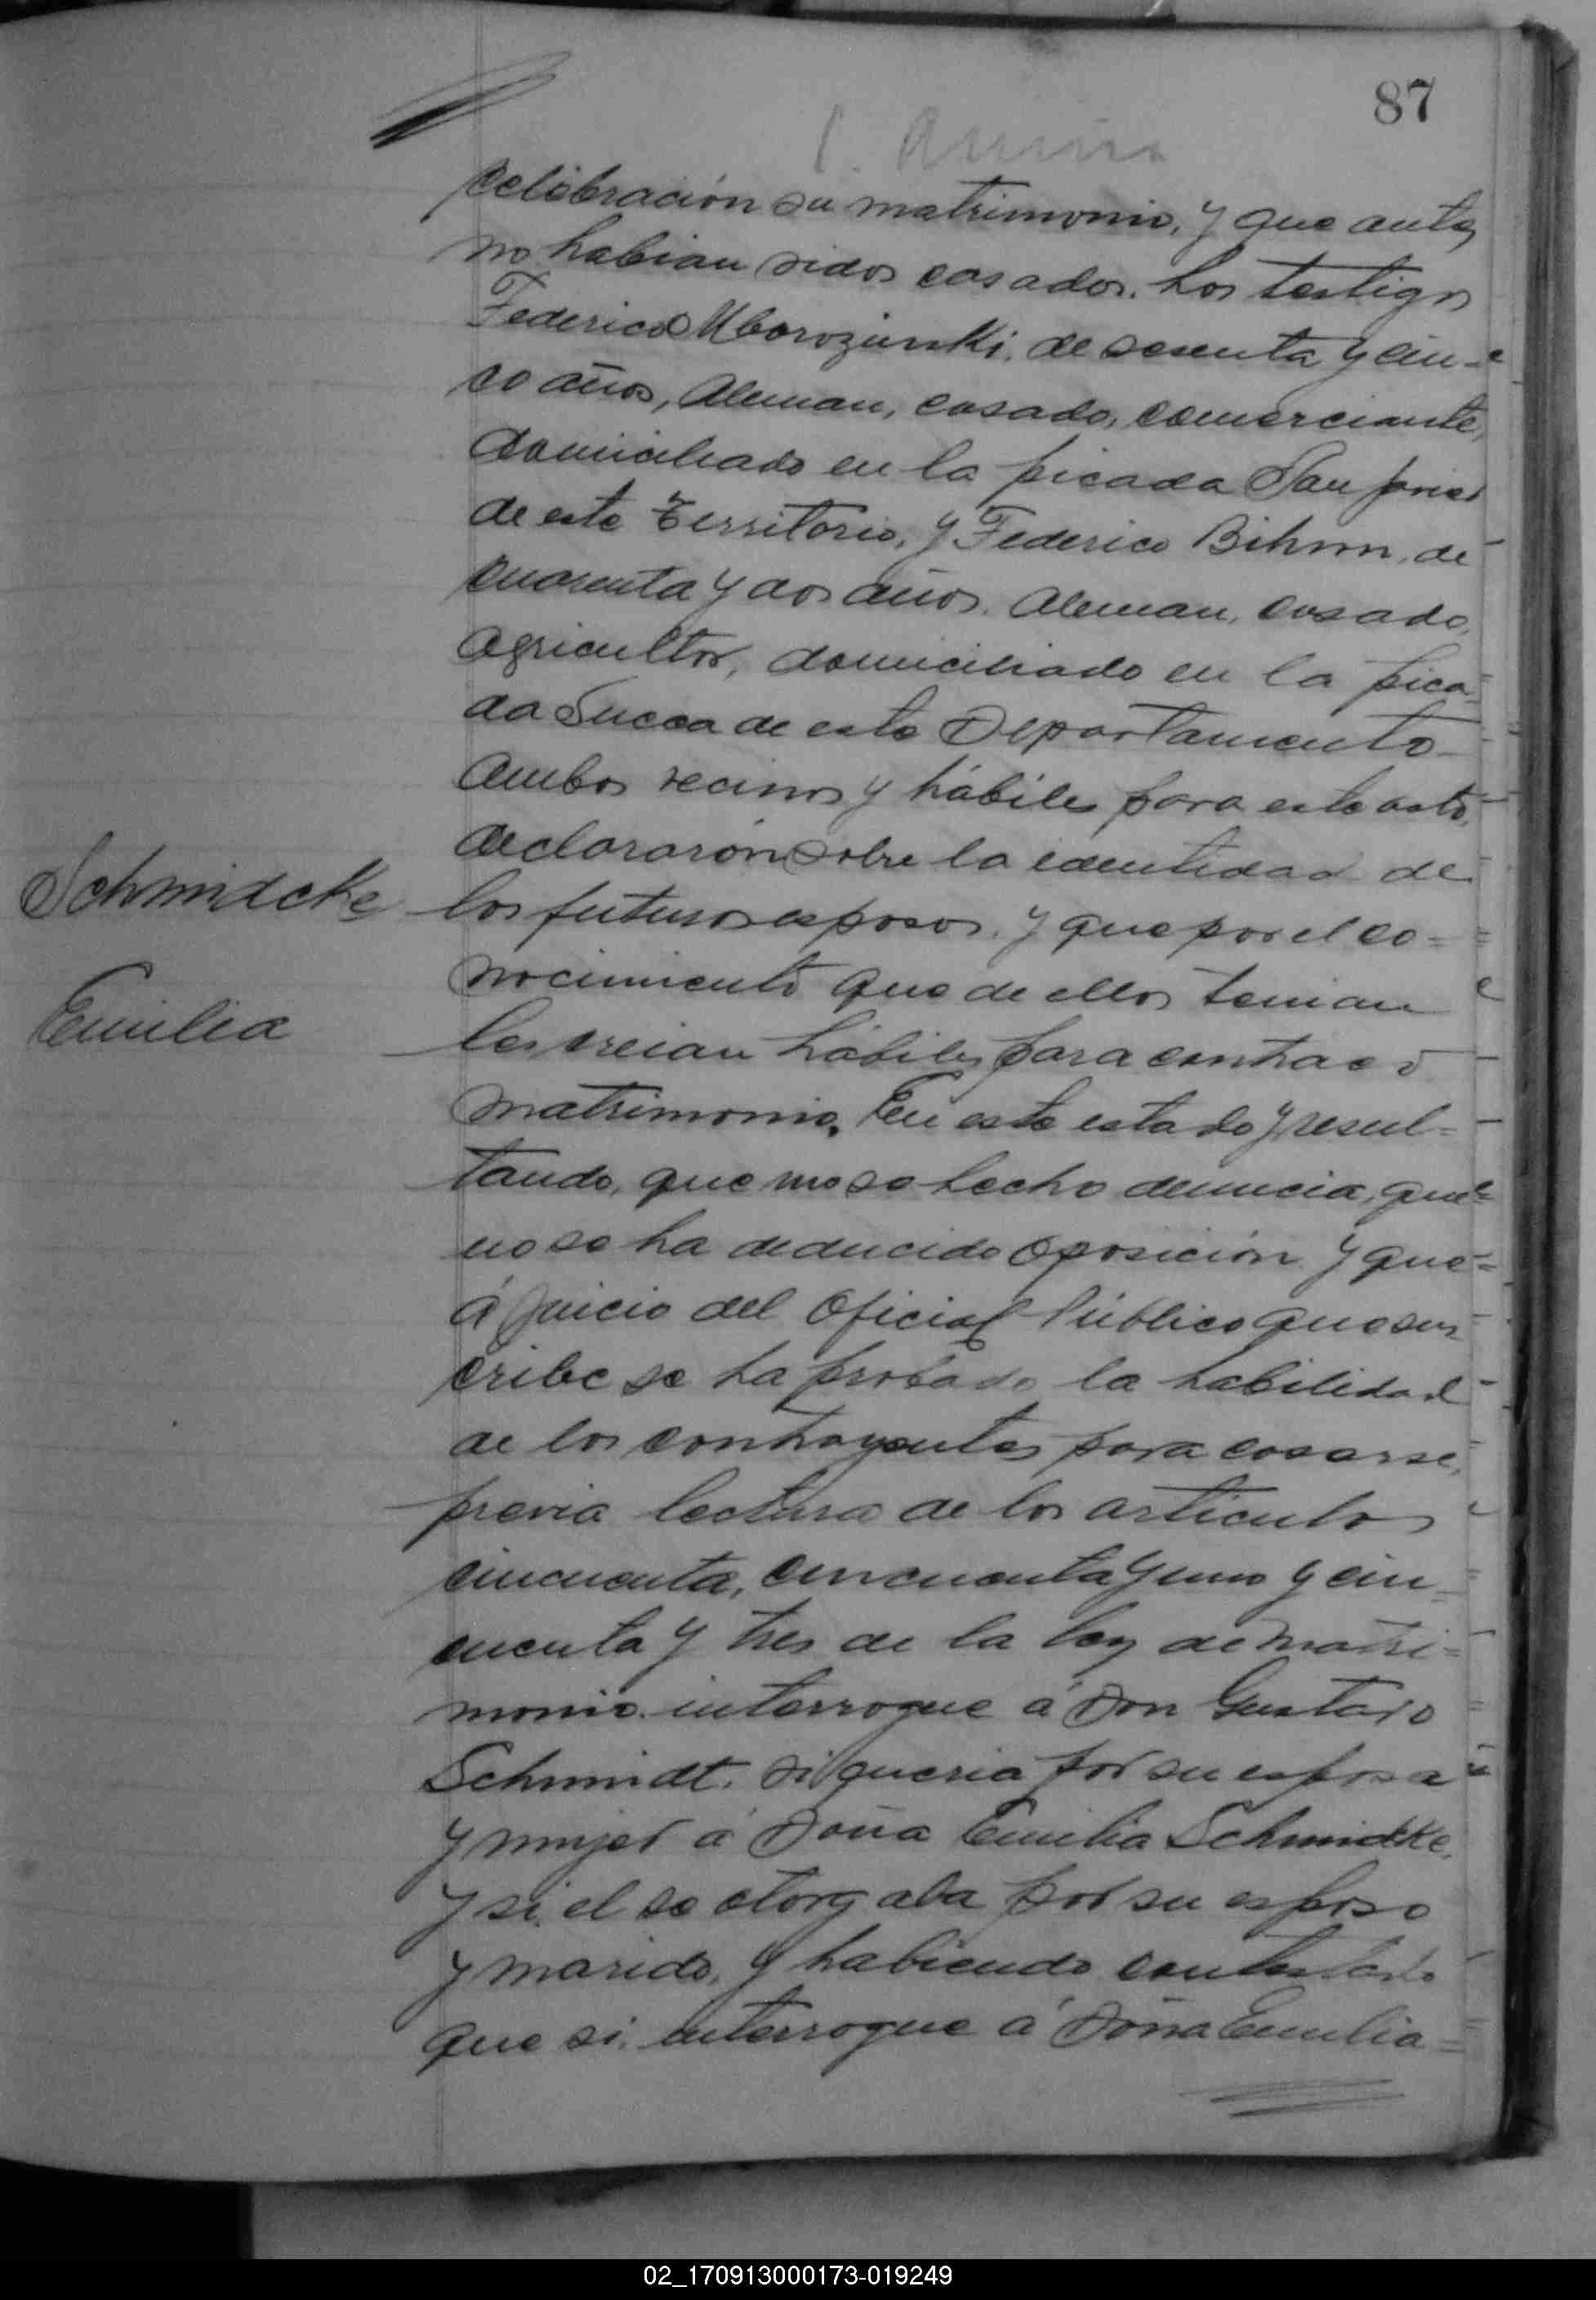 87
celebración su matrimonio, y que antes
no habian sidos casados. Los testigos
Federico de sesenta y cin-
co años, Aleman, casado, comerciante,
domiciliado en la picada San Javier
de este Territorio, y Federico Bihnn, de
cuarenta y dos años, Aleman, casado,
agricultor, domiciliado en la pica-
da Sueca de este Departamento
ambos vecinos y hábiles para este acto,
declararón sobre la identidad de
Schmidcke
los futuros esposos, y que por el co-
nocimiento que de ellos tenian
Emilia
los creian hábiles para contraer
matrimonio. En este estado y resul-
tando, que no se hecho denuncia, que
no se ha deducido oposición y que
á juicio del Oficial Público que sus
cribe se ha probado la habilidad
de los contrayentes para casarse,
previa lectura de los articulos
cincuenta, cincuenta y uno y cin
cuenta y tres de la ley de matri-
monio interrogue á Don Gustavo
Schmidt, si queria por su esposa
y mujer á Doña Emilia Schmidtke,
y si el se otorgaba por su esposo
y marido, y habiendo contestado
que si, interrogue á Doña Emilia
02_170913000173-019249